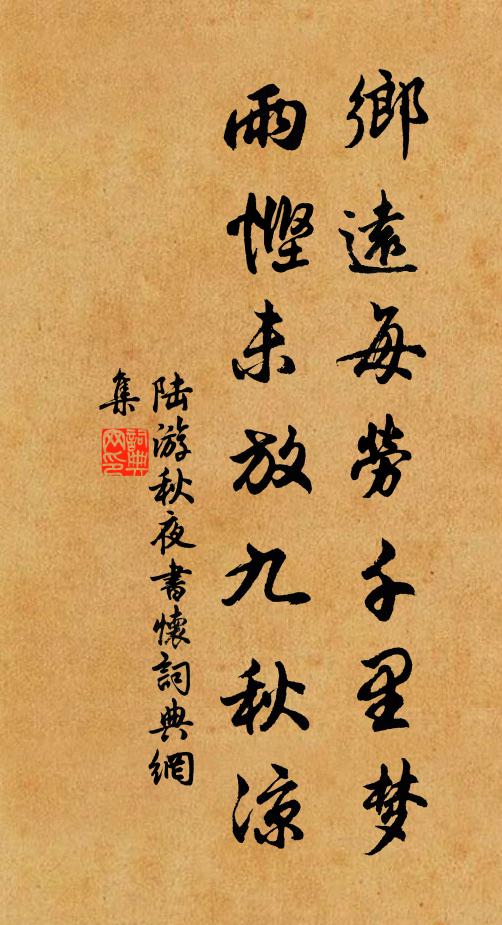 鄉遠每勞千里梦
雨慳未放九秋涼
陆游秋夜書懷詞典網
集
詞典
网印